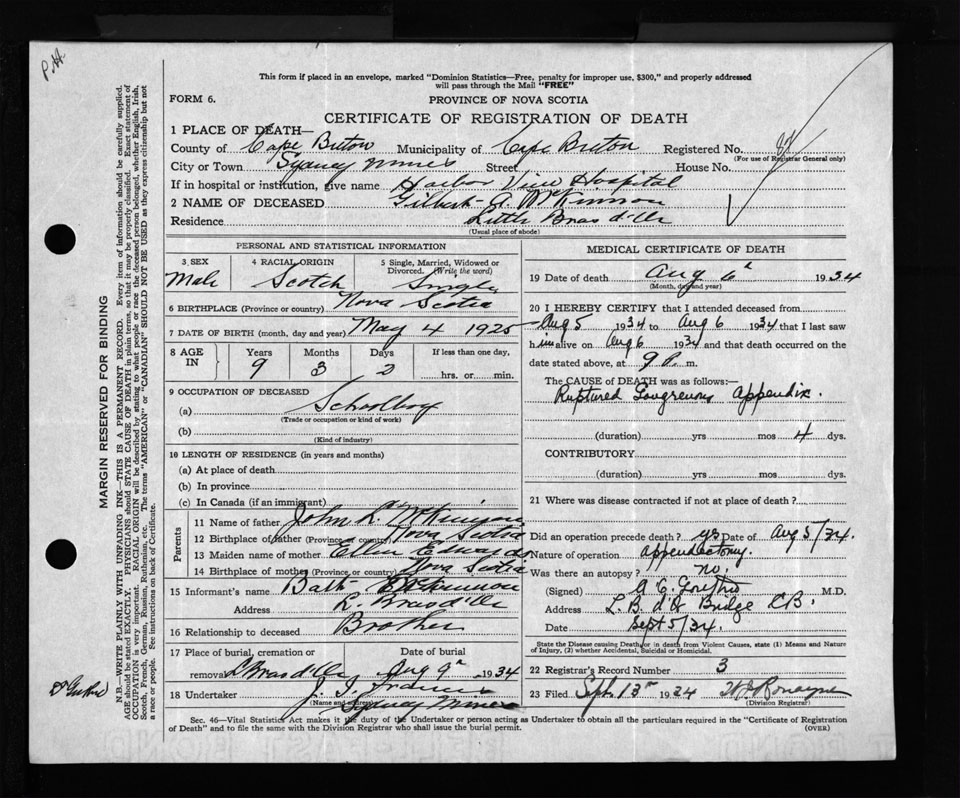 This form if placed in an envelope, marked "Dominion Statistics—Free, penalty for improper use, $300," and properly addressed
will pass through the Mail "FREE"
FORM 6.
PROVINCE OF NOVA SCOTIA
CERTIFICATE OF REGISTRATION OF DEATH
1 PLACE OF DEATH—
County of Cape Breton Municipality of Cape Breton Registered No.
(For use of Registrar General only)
City or Town Sydney Mines Street House No.
If in hospital or institution, give name Harbor View Hospital
2 NAME OF DECEASED Gilbert A. McKinnon
Residence Little Bras d'Or
(Usual place of abode)
PERSONAL AND STATISTICAL INFORMATION
3 SEX 4 RACIAL ORIGIN 5 Single, Married, Widowed or Divorced. (Write the word)
Male Scotch Single
6 BIRTHPLACE (Province or country) Nova Scotia
7 DATE OF BIRTH (month, day and year) May 4 1925
8 AGE IN Years Months Days If less than one day,
9 3 2 hrs. or min.
9 OCCUPATION OF DECEASED
(a) Schoolboy
(Trade or occupation or kind of work)
(b)
(Kind of industry)
10 LENGTH OF RESIDENCE (in years and months)
(a) At place of death
(b) In province
(c) In Canada (if an immigrant)
Parents
11 Name of father John L. McKinnon
12 Birthplace of father (Province or country) Nova Scotia
13 Maiden name of mother Ellen Edwards
14 Birthplace of mother (Province or country) Nova Scotia
15 Informant's name McKinnon
Address L. Bras d'Or
16 Relationship to deceased Brother
17 Place of burial, cremation or removal Date of burial
L Bras d'Or Aug 9th 1934
18 Undertaker
(Name and address)
Sydney Mines
MEDICAL CERTIFICATE OF DEATH
19 Date of death Aug 6th 1934
(Month, day and year)
20 I HEREBY CERTIFY that I attended deceased from
Aug 5 1934 to Aug 6 1934 that I last saw
him alive on Aug 6 1934 and that death occurred on the
date stated above, at 9 P. m.
The CAUSE of DEATH was as follows:—
Ruptured Gangrenous Appendix.
(duration) yrs mos 4 dys.
CONTRIBUTORY
(duration) yrs mos dys.
21 Where was disease contracted if not at place of death?
Did an operation precede death? yes Date of Aug 5/34.
Nature of operation appendectomy.
Was there an autopsy? no.
(Signed) M.D.
Address L. B. d'Or Bridge C.B.
Date Sept 5/34.
State the Disease causing Death, or in death from Violent Causes, state (1) Means and Nature
of Injury, (2) whether Accidental, Suicidal or Homicidal.
22 Registrar's Record Number 3
23 Filed Sept 13th 1934
(Division Registrar)
Sec. 46—Vital Statistics Act makes it the duty of the Undertaker or person acting as Undertaker to obtain all the particulars required in the "Certificate of Registration
of Death" and to file the same with the Division Registrar who shall issue the burial permit.
(OVER)
MARGIN RESERVED FOR BINDING
N.B.—WRITE PLAINLY WITH UNFADING INK—THIS IS A PERMANENT RECORD. Every item of information should be carefully supplied.
AGE should be stated EXACTLY. PHYSICIANS should STATE CAUSE OF DEATH in plain terms, so that it may be properly classified. Exact statement of
OCCUPATION is very important. RACIAL ORIGIN will be described by stating to what people or race the deceased person belonged, whether English, Irish,
Scotch, French, German, Russian, Ruthenian, etc. The terms "AMERICAN" or "CANADIAN" SHOULD NOT BE USED as they express citizenship but not
a race or people. See instructions on back of Certificate.